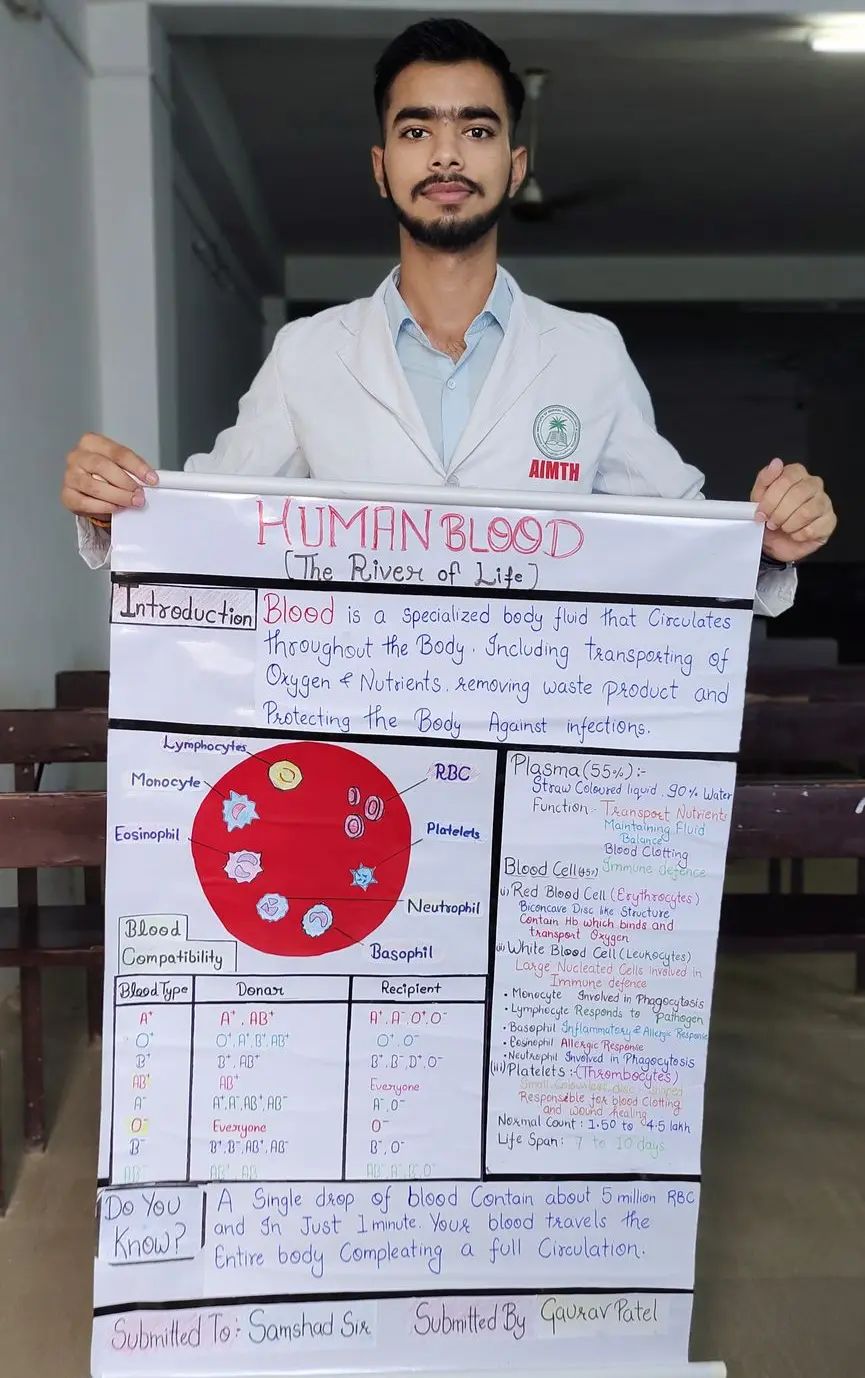 AIMTH
HUMAN BLOOD
(The River of Life)
Introduction
Blood is a specialized body fluid that Circulates
throughout the Body. Including transporting of
Oxygen & Nutrients. removing waste product and
Protecting the Body Against infections.
Lymphocytes
Monocyte
Eosinophil
RBC
Platelets
Neutrophil
Basophil
Blood
Compatibility
Blood Type Donar Recipient
A+ A+, AB+ A+, A-, O+, O-
O+ O+, A+, B+, AB+ O+, O-
B+ B+, AB+ B+, B-, O+, O-
AB+ AB+ Everyone
A- A+, A-, AB+, AB- A-, O-
O- Everyone O-
B- B+, B-, AB+, AB- B-, O-
AB- AB+, AB- AB-, A-, B-, O-
Plasma (55%) :-
Straw Coloured liquid. 90% Water
Function - Transport Nutrients
Maintaining Fluid
Balance
Blood Clotting
Immune defence
Blood Cell (45%)
(i) Red Blood Cell (Erythrocytes)
Biconcave Disc like Structure
Contain Hb which binds and
transport Oxygen
(ii) White Blood Cell (Leukocytes)
Large Nucleated Cells involved in
Immune defence
• Monocyte Involved in Phagocytosis
• Lymphocyte Responds to Pathogen
• Basophil Inflammatory & Allergic Response
• Eosinophil Allergic Response
• Neutrophil Involved in Phagocytosis
(iii) Platelets :- (Thrombocytes)
Small, Colourless, disc shaped
Responsible for blood Clotting
and wound healing
Normal Count : 1.50 to 4.5 lakh
Life Span : 7 to 10 days
Do You
Know?
A Single drop of blood Contain about 5 million RBC
and In Just 1 minute. Your blood travels the
Entire body Compleating a full Circulation.
Submitted To : Samshad Sir Submitted By Gaurav Patel